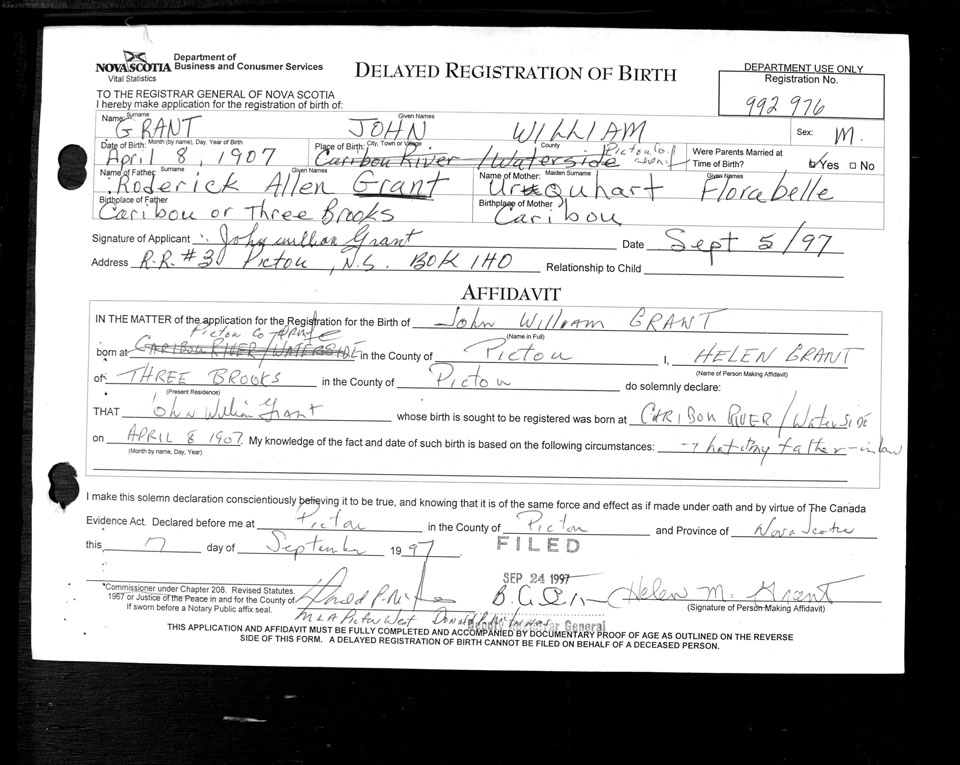 NOVA SCOTIA
Vital Statistics
Department of
Business and Conusmer Services
DELAYED REGISTRATION OF BIRTH
DEPARTMENT USE ONLY
Registration No.
992 976
TO THE REGISTRAR GENERAL OF NOVA SCOTIA
I hereby make application for the registration of birth of:
Name: Surname Given Names Sex:
GRANT JOHN WILLIAM M.
Date of Birth: Month (by name), Day, Year of Birth Place of Birth: City, Town or Village. County Were Parents Married at
April 8, 1907 Caribou River / Waterside Pictou Co. Time of Birth? Yes No
Name of Father: Surname Given Names Name of Mother: Maiden Surname Given Names
Roderick Allen Grant Urquhart Florabelle
Birthplace of Father Birthplace of Mother
Caribou or Three Brooks Caribou
Signature of Applicant John William Grant Date Sept 5/97
Address R.R. #3 Pictou, N.S. B0K 1H0 Relationship to Child
AFFIDAVIT
IN THE MATTER of the application for the Registration for the Birth of John William GRANT
(Name in Full)
Pictou Co
born at CARIBOU RIVER/WATERSIDE in the County of Pictou I, HELEN GRANT
(Name of Person Making Affidavit)
of THREE BROOKS in the County of Pictou do solemnly declare:
(Present Residence)
THAT John William Grant whose birth is sought to be registered was born at CARIBOU RIVER / WATERSIDE
on APRIL 8 1907. My knowledge of the fact and date of such birth is based on the following circumstances: my father-in-law
(Month by name, Day, Year)
I make this solemn declaration conscientiously believing it to be true, and knowing that it is of the same force and effect as if made under oath and by virtue of The Canada
Evidence Act. Declared before me at Pictou in the County of Pictou and Province of Nova Scotia
this 17 day of September 1997.
FILED
SEP 24 1997
*Commissioner under Chapter 208. Revised Statutes.
1967 or Justice of the Peace in and for the County of
If sworn before a Notary Public affix seal.
Helen M. Grant
(Signature of Person Making Affidavit)
MLA Pictou West Donald P. McInnes
Deputy Registrar General
THIS APPLICATION AND AFFIDAVIT MUST BE FULLY COMPLETED AND ACCOMPANIED BY DOCUMENTARY PROOF OF AGE AS OUTLINED ON THE REVERSE
SIDE OF THIS FORM. A DELAYED REGISTRATION OF BIRTH CANNOT BE FILED ON BEHALF OF A DECEASED PERSON.